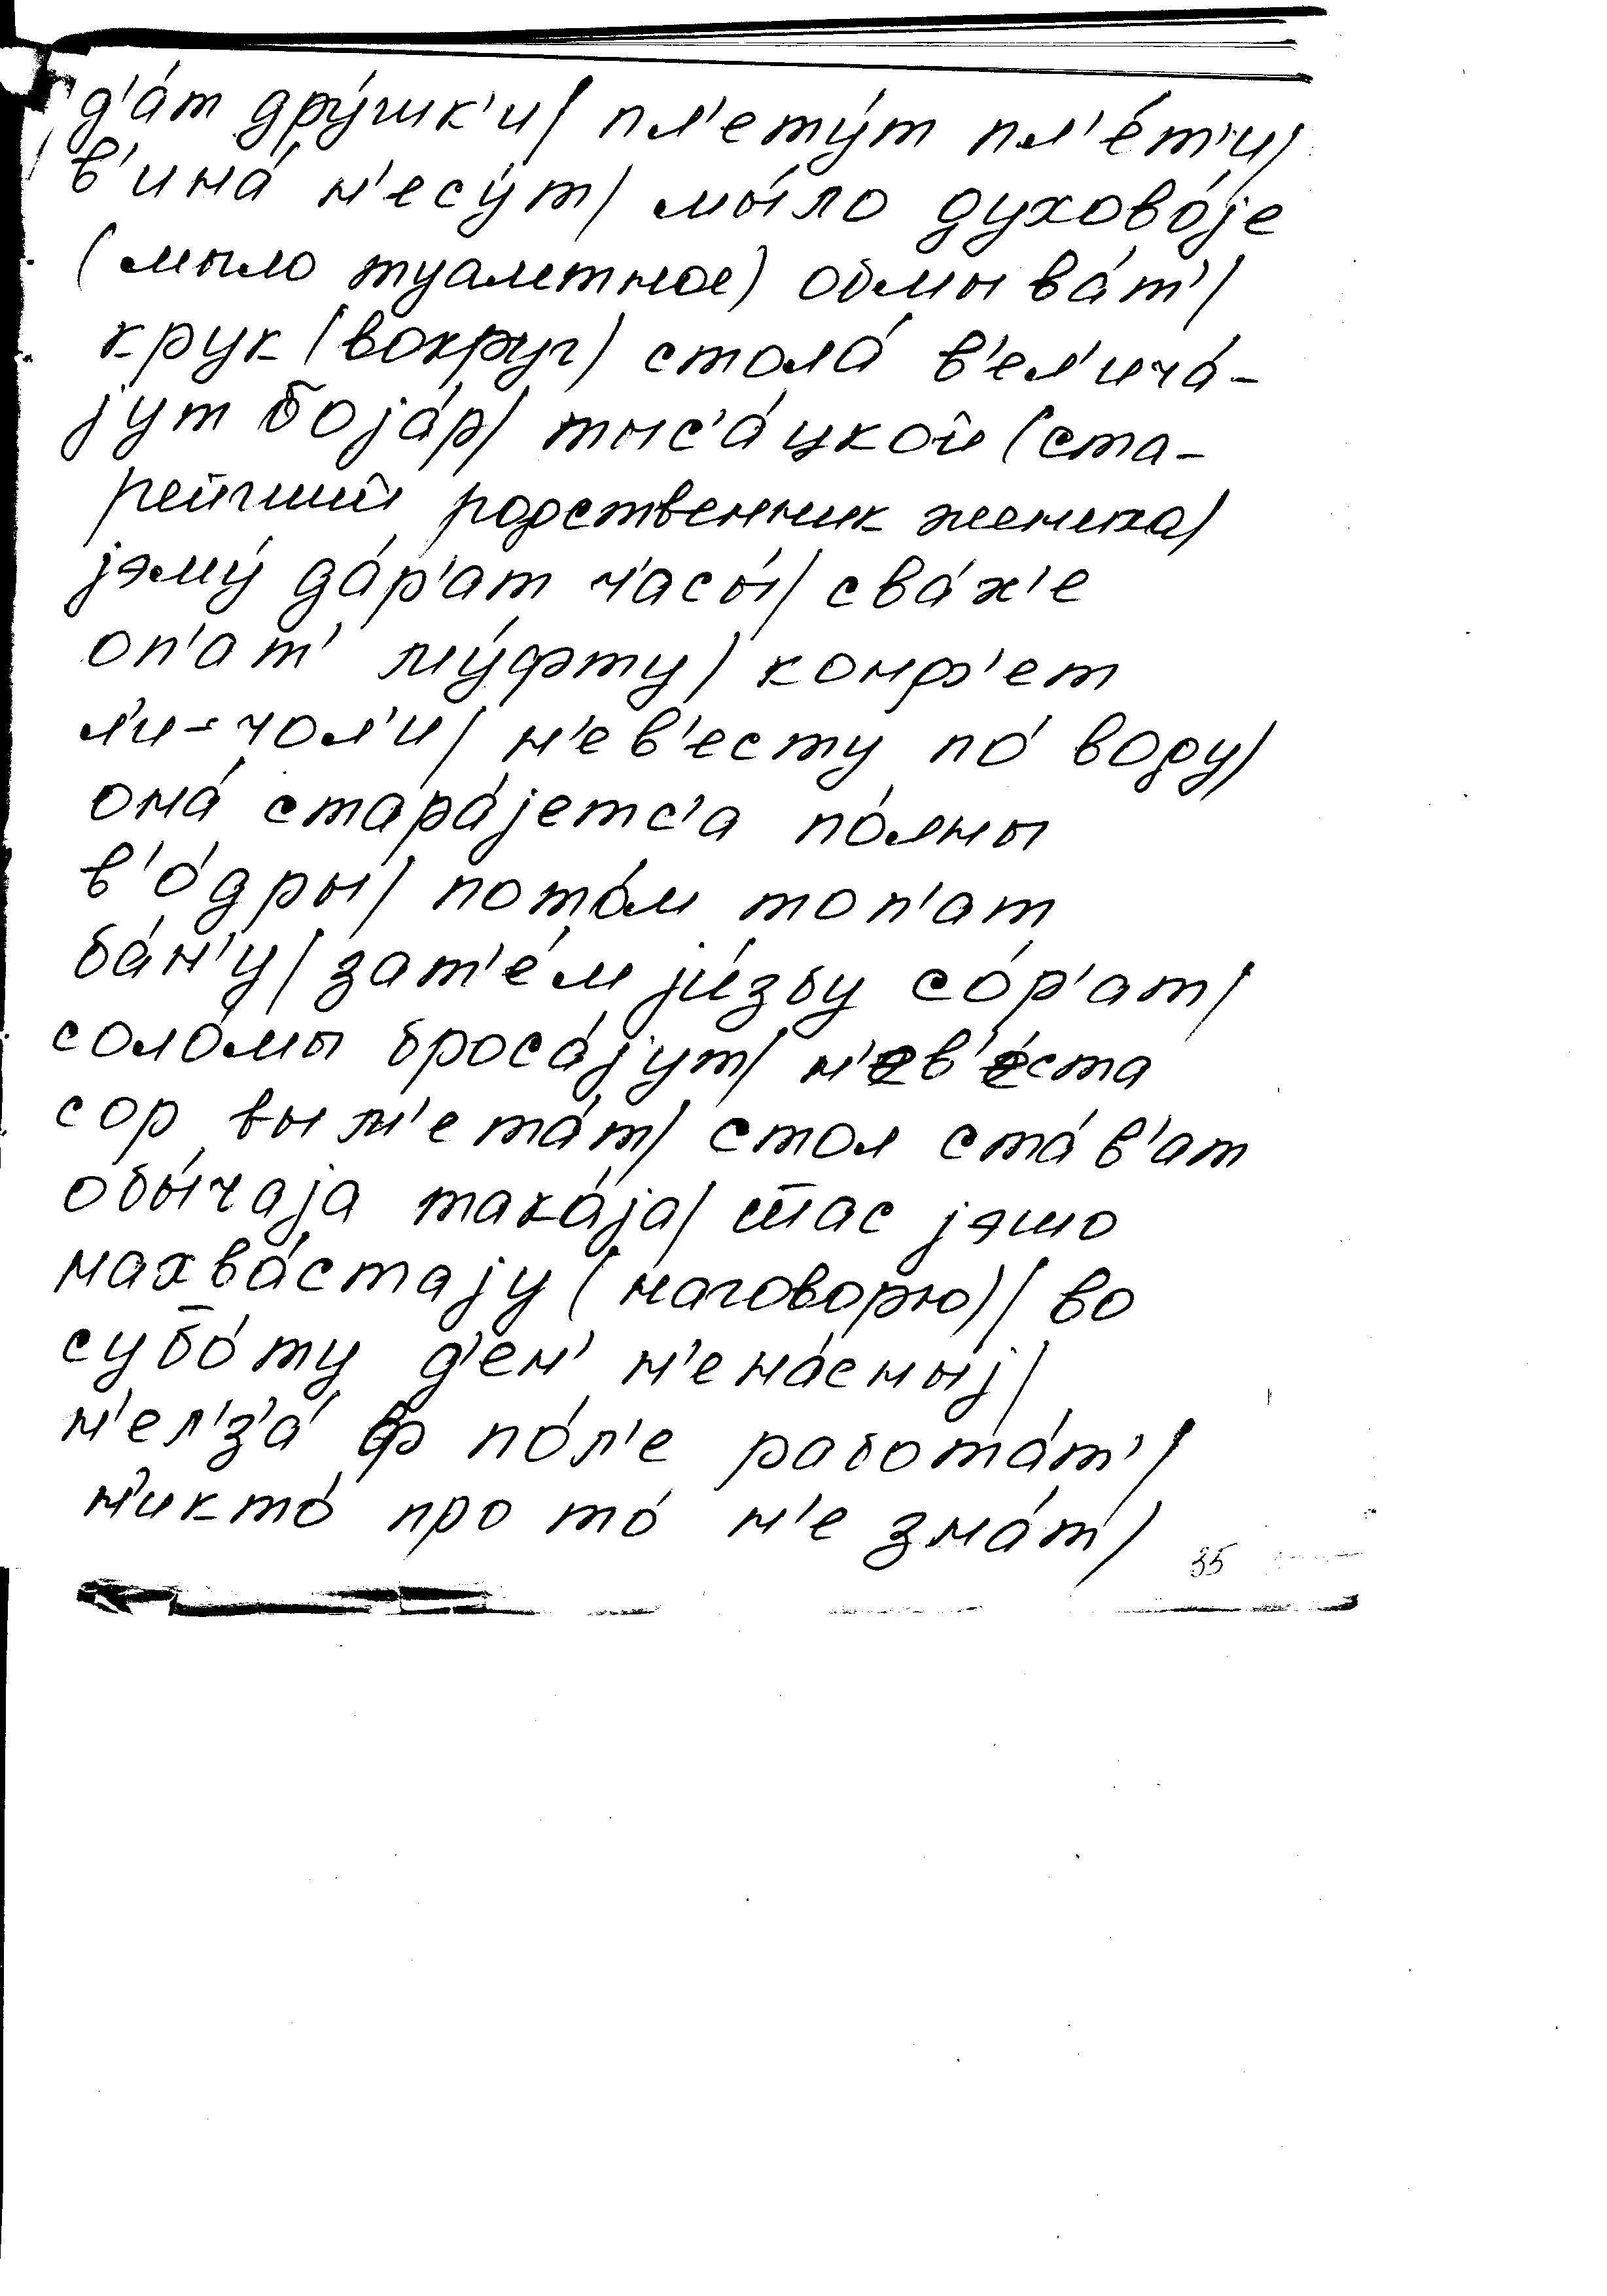 д'а́т дру́шк'и/ пл'ету́т пл'е́т'и/
в'ина́ н'есу́т/ мы́ло духово́jе
(мыло туалетное) обмыва́т'/
крук (вокруг) стола́ в'ел'ича́-
jут боjа́р/ тыс'а́цкой (ста-
рейший родственник жениха)
jэму́ да́р'ат ч'асы́/ сва́х'е
оп'ат' му́фту/ конф'ет
л'и-чол'и/ н'ев'есту по́ воду/
она́ стара́jетс'а по́лны
в'о́дры/ пото́м топ'ат
ба́н'у/ зат'е́м jи́збу со́р'ат/
соло́мы броса́jут/ н'ев'е́ста
сор вым'ета́т/ стол ста́в'ат
обы́чаjа така́jа/ шас jэшо
нахва́стаjу (наговорю)/ во
субо́ту д'ен' н'ена́сныj/
н'ел'з'а́ ф по́л'е работа́т'/
н'икто́ про то́ н'е зна́т/
35